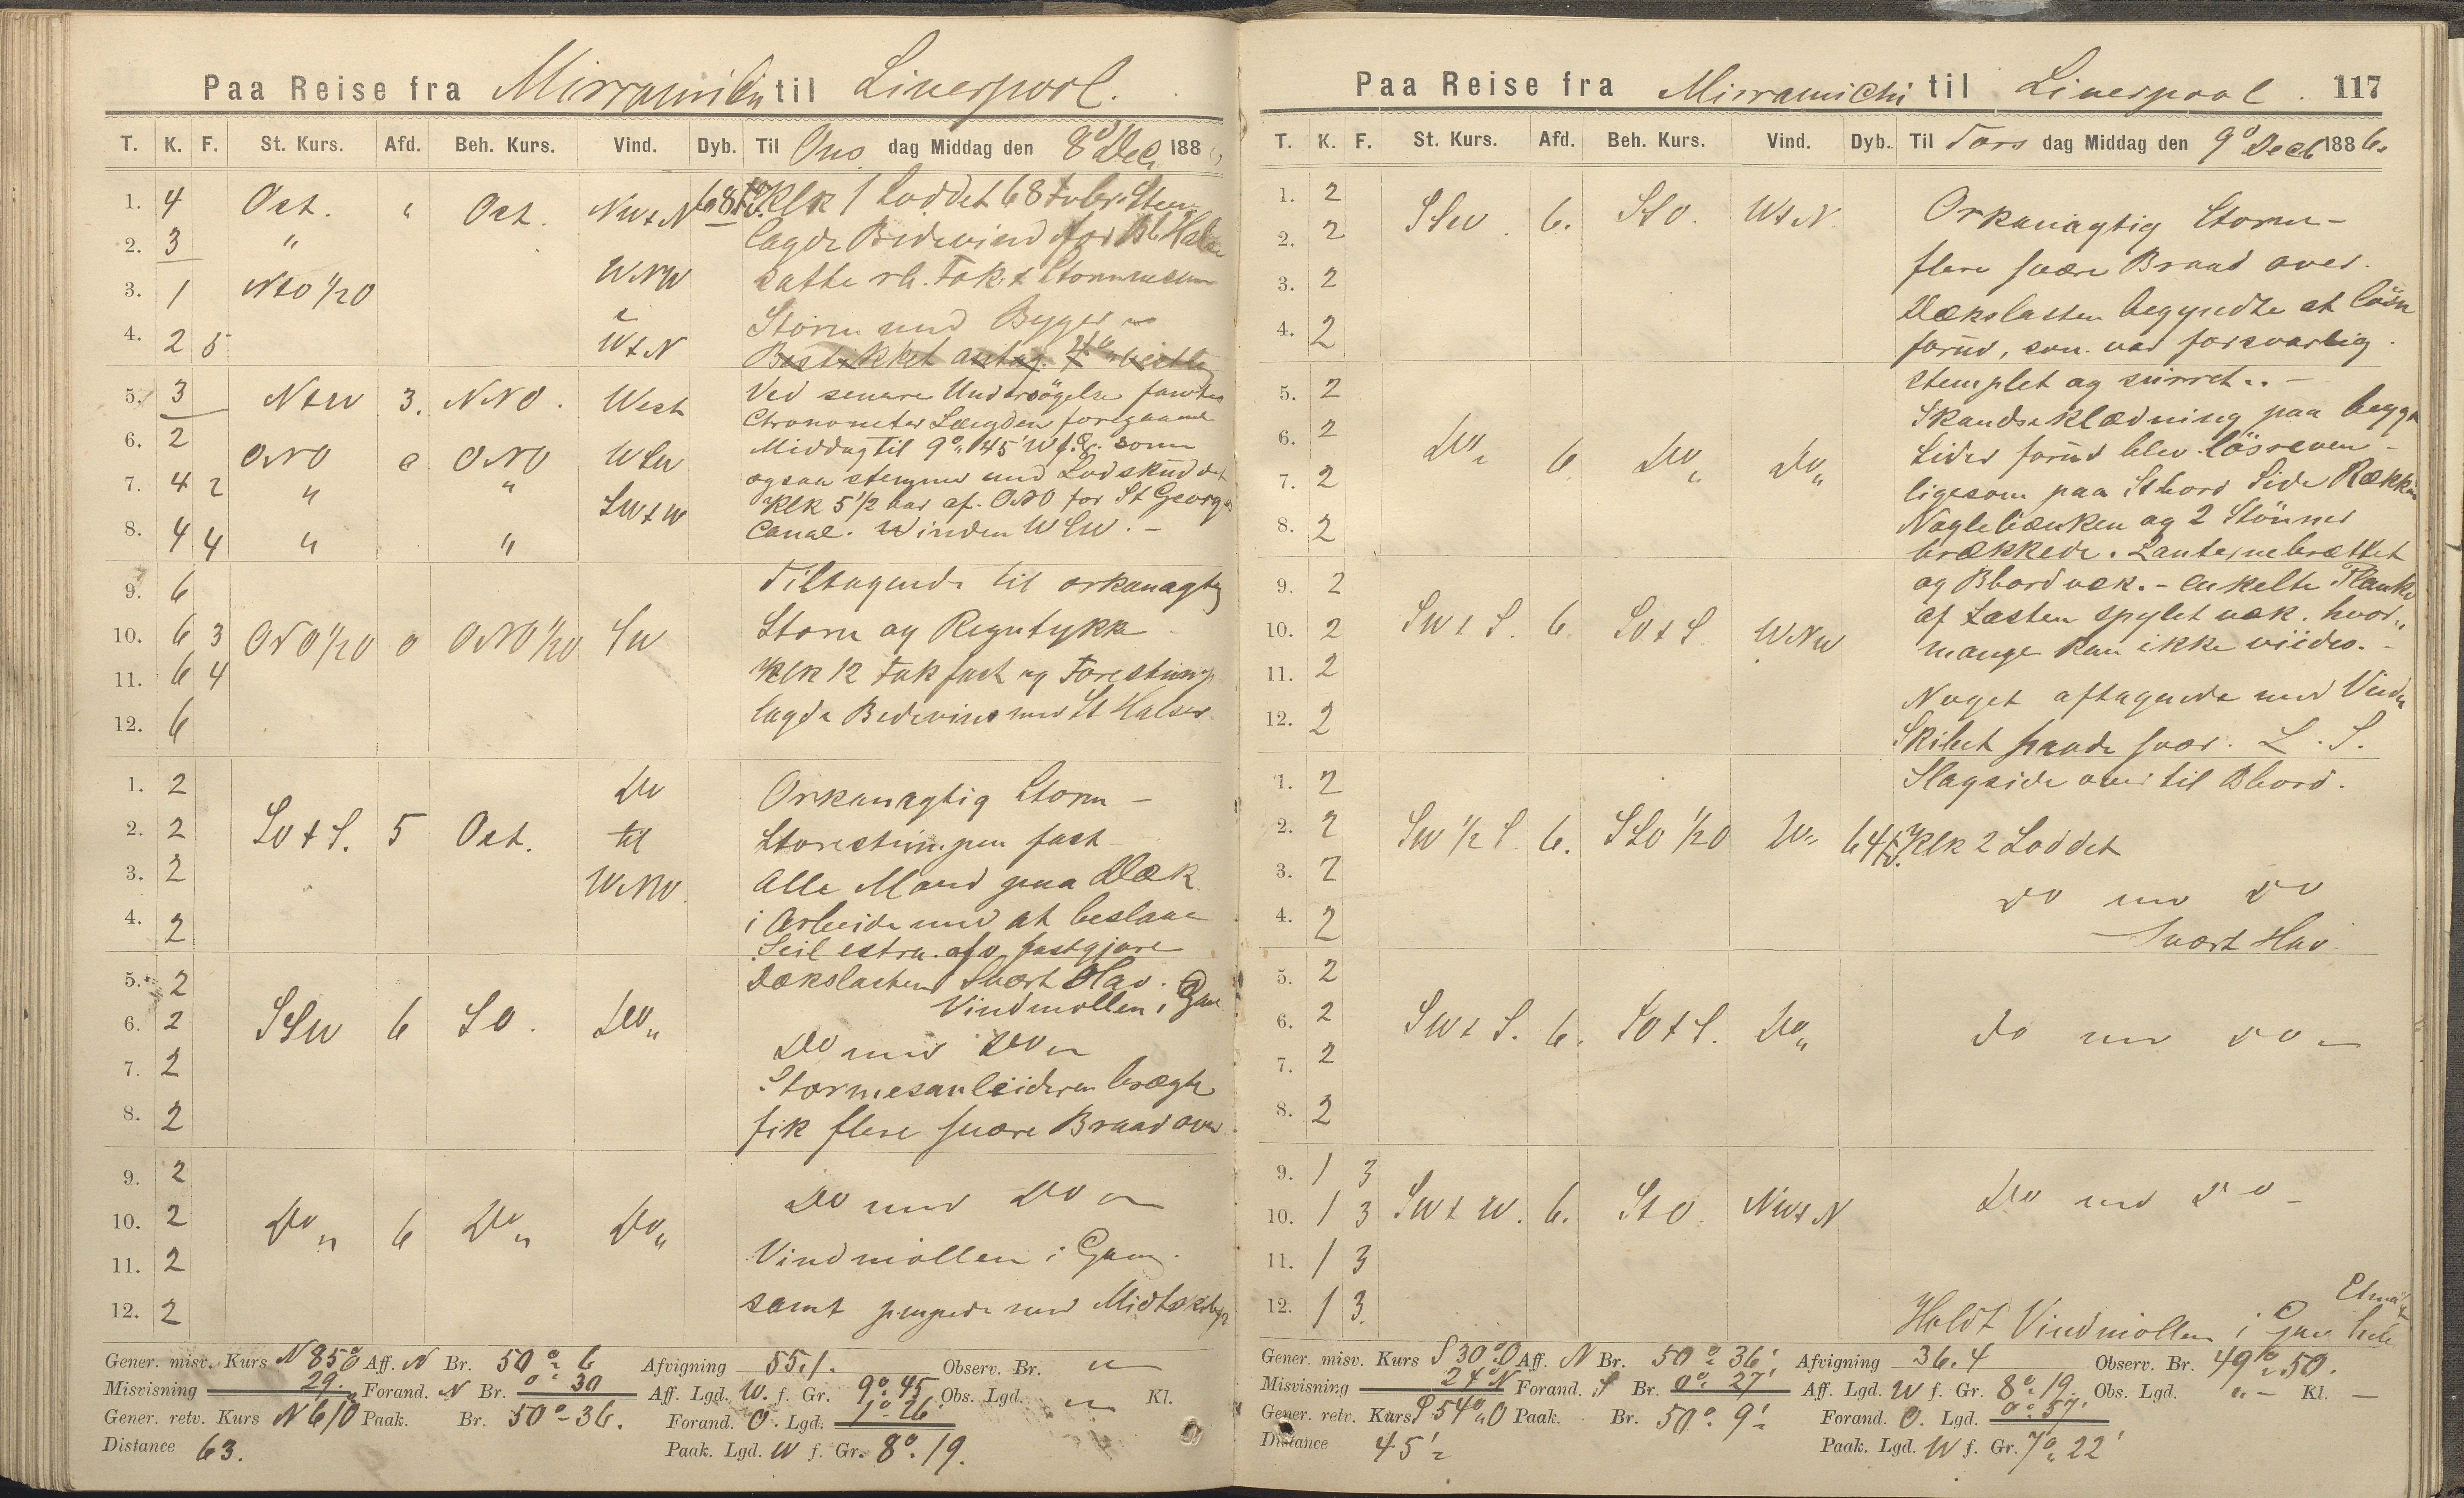 Paa Reise fra Mirramichi til Liverpool.
T. K. F. St. Kurs. Afd. Beh. Kurs. Vind. Dyb. Til Ons dag Middag den 8de Dec 188
1. 4 Ost. " Ost. NWtN 68 fv. Klk 1 Loddet 68 Favne
2. 3 " lagde Bidevind for Bb Halse
3. 1 NtO 1/2O WNW satte rb. Fok & Stormmesan
4. 2 5 WtN Storm med Byger
Bestikket
5. 3 NtW 3. NNO. West Ved senere Undersögelse fandtes
Chronometer Længden foregaaende
6. 2 ONO 0 ONO WSW Middag til 9° 45' W f. G. som
ogsaa stemmer med Lodskuddet
7. 4 2 " " SWtW Klk 5 1/2 bar af. ONO for St Georges
8. 4 4 " " Canal. Winden WSW. -
9. 6 Tiltagende til orkanagtig
10. 6 3 ONO 1/2O 0 ONO 1/2O SW Storm og Regntykke
11. 6 4 Klk 12 Fok fast og Forestumpen
12. 6 lagde Bidevind med St Halser
1. 2 Do Orkanagtig Storm -
2. 2 SOtS. 5 Ost. til Storestumpen fast
3. 2 WNW. Alle Mand paa Dæk
4. 2 i Arbeide med at beslaae
Seil extra. og fastgjøre
5. 2 Dækslasten Svært Hav.
Vindmøllen i Gang
6. 2 SSW 6 SO. Do "
Do med Do
7. 2 Stormesanleideren brægte
8. 2 fik flere svære Braad over
9. 2 Do med Do
10. 2 Do " 6 Do " Do "
11. 2 Vindmøllen i Gang.
12. 2 samt pumpede med Midtskibs
Gener. misv. Kurs N 85° O Aff. N Br. 50° 6 Afvigning 55.1. Observ. Br. "
Misvisning 29. Forand. N Br. 0° 30 Aff. Lgd. W. f. Gr. 9° 45 Obs. Lgd. " Kl.
Gener. retv. Kurs N 61 O Paak. Br. 50° 36. Forand. O. Lgd. 1° 26'
Distance 63. Paak. Lgd. W f. Gr. 8° 19.
Paa Reise fra Mirramichi til Liverpool. 117
T. K. F. St. Kurs. Afd. Beh. Kurs. Vind. Dyb. Til Tors dag Middag den 9de Decb 1886.
1. 2 SSW. 6. StO. WtN Orkanagtig Storm -
2. 2 flere svære Braad over.
3. 2 Dækslasten begyndte at løsne
4. 2 forud, som var forsvarlig
stemplet og surret. -
5. 2 Skandseklædning paa begge
6. 2 Do " 6 Do " Do " Sider forud blev lösreven -
7. 2 ligesom paa Stbord Side Rækken
8. 2 Naglebænken og 2 Stönner
brækkede. Lanternebrættet
9. 2 og Bbord væk. - enkelte Planker
10. 2 SWtS. 6. SOtS. WNW af Lasten spylet væk. hvor
mange kan ikke viides. -
11. 2 Noget aftagende med Vinden
12. 2 Skibet svær. L. S.
1. 2 Slagside over til Bbord.
2. 2 SW 1/2 S. 6. SSO 1/2O Do " 64 fv. Klk 2 Loddet
3. 2 Do med Do
4. 2 Svært Hav
5. 2
6. 2 SWtS. 6. SOtS. Do " Do med Do
7. 2
8. 2
9. 1 3
10. 1 3 SWtW. 6. StO. NWtN Do med Do -
11. 1 3
12. 1 3. Holdt Vindmøllen i Gang hele Etmal
Gener. misv. Kurs S 30° O Aff. N Br. 50° 36' Afvigning 36.4 Observ. Br. 49° 50.
Misvisning 24° N Forand. S Br. 0° 27' Aff. Lgd. W f. Gr. 8° 19. Obs. Lgd. " - Kl. -
Gener. retv. Kurs S 54° O Paak. Br. 50° 9' Forand. O. Lgd. 0° 57'
Distance 45' Paak. Lgd. W f. Gr. 7° 22'